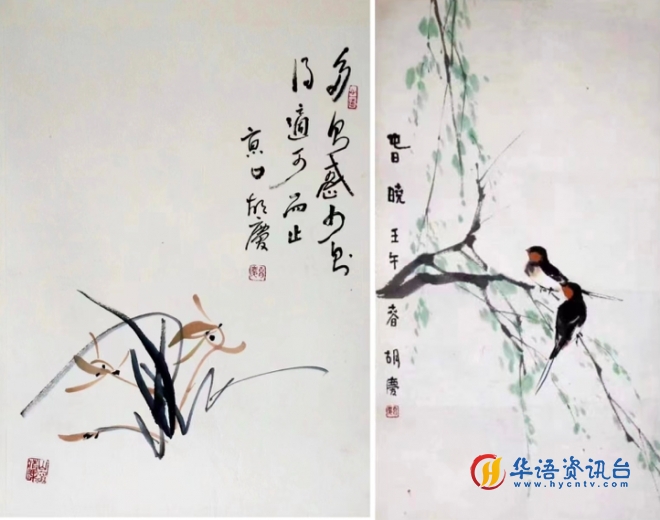 多则惑少则
得適可而止
京口胡慶
旾曉 壬午春 胡慶
华语资讯台
www.hycntv.com